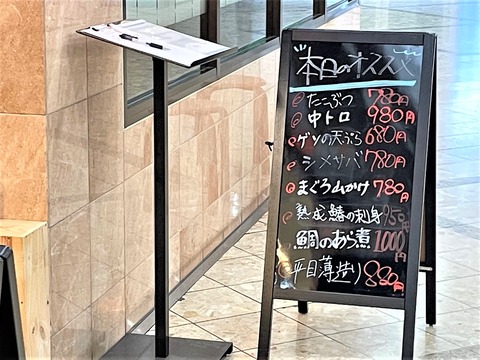 本日のオススメ
たこぶつ 780円
中トロ 980円
ゲソの天ぷら 680円
シメサバ 780円
まぐろ山かけ 780
熟成鰆の刺身 950円
鯛のあら煮 1000円
平目薄造り 880円